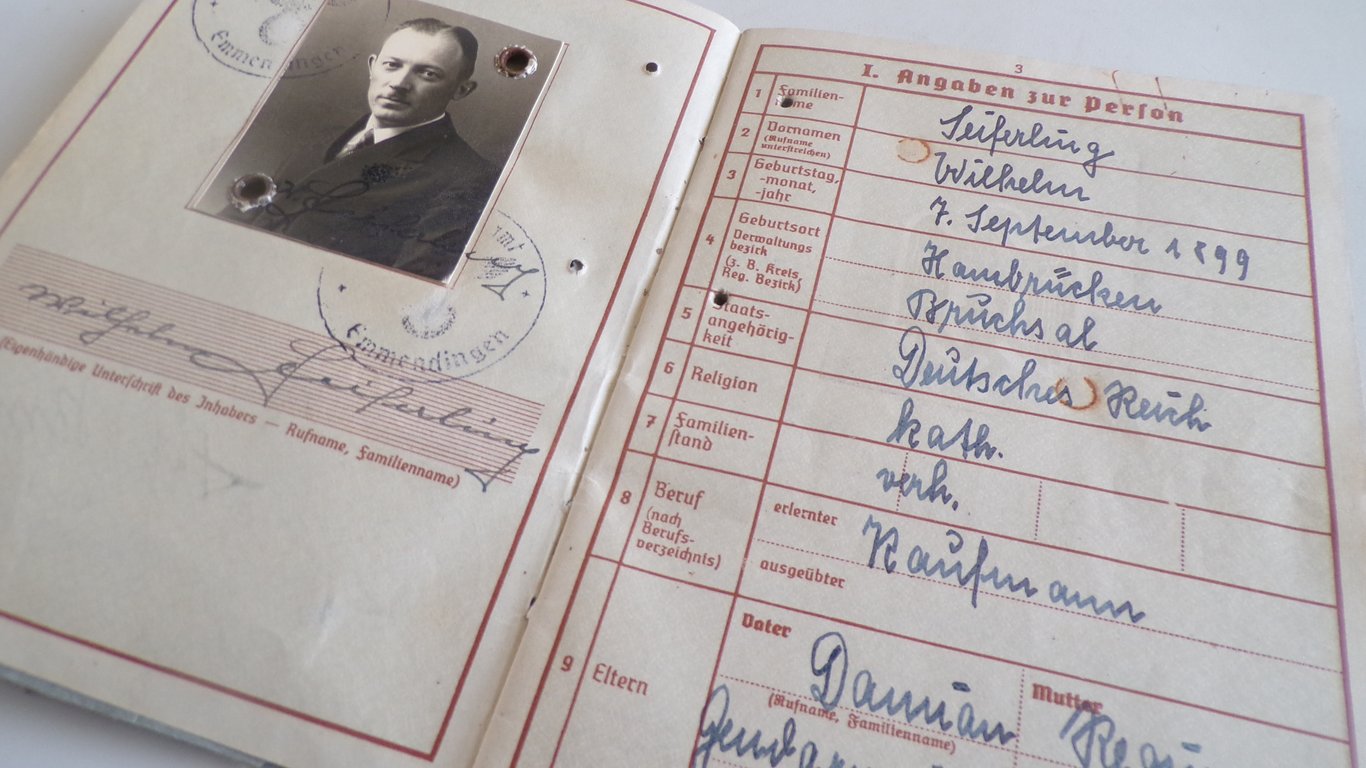 Emmendingen
Emmendingen
Wilhelm Seiferling
(Eigenhändige Unterschrift des Inhabers — Rufname, Familienname)
3
I. Angaben zur Person
1 Familien-
name
Seiferling
2 Vornamen
(Rufname
unterstreichen)
Wilhelm
3 Geburtstag,
-monat,
-jahr
7. September 1899
4 Geburtsort
Verwaltungs
bezirk
(z. B. Kreis
Reg. Bezirk)
Hambrücken
Bruchsal
5 Staats-
angehörig-
keit
Deutsches Reich
6 Religion
kath.
7 Familien-
stand
verh.
8 Beruf
(nach
Berufs-
verzeichnis)
erlernter
Kaufmann
ausgeübter
9 Eltern
Vater
Damian
(Rufname, Familienname)
Mutter